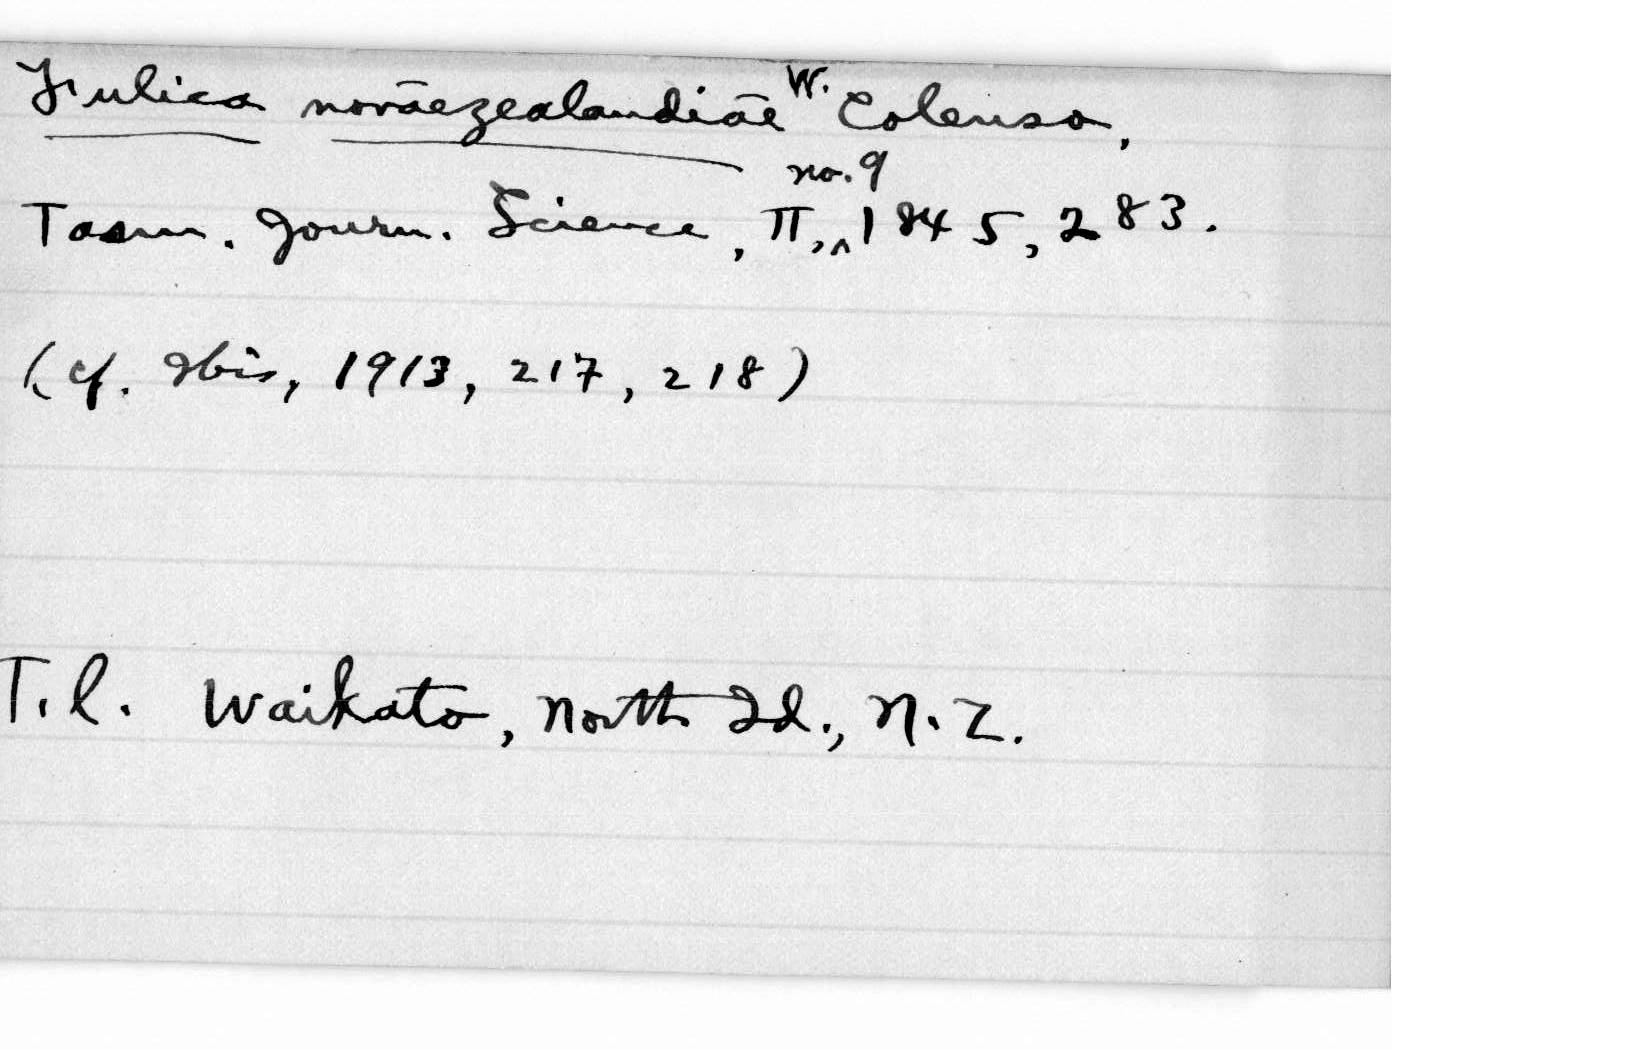 Fulica novāezealandiāe W. Colenso,
Tasm. Journ. Science, II, no. 9 1845, 283.
(cf. Ibis, 1913, 217, 218)
T.l. Waikato, North Id., N.Z.